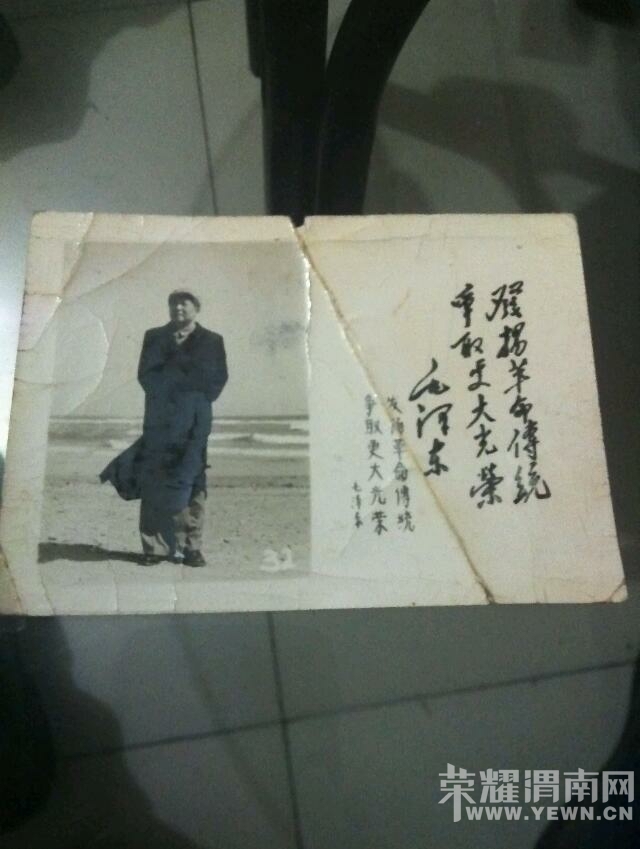 發揚革命傳統
爭取更大光榮
毛泽东
发扬革命傳统
争取更大光荣
毛泽东
32
荣耀渭南网
WWW.YEWN.CN